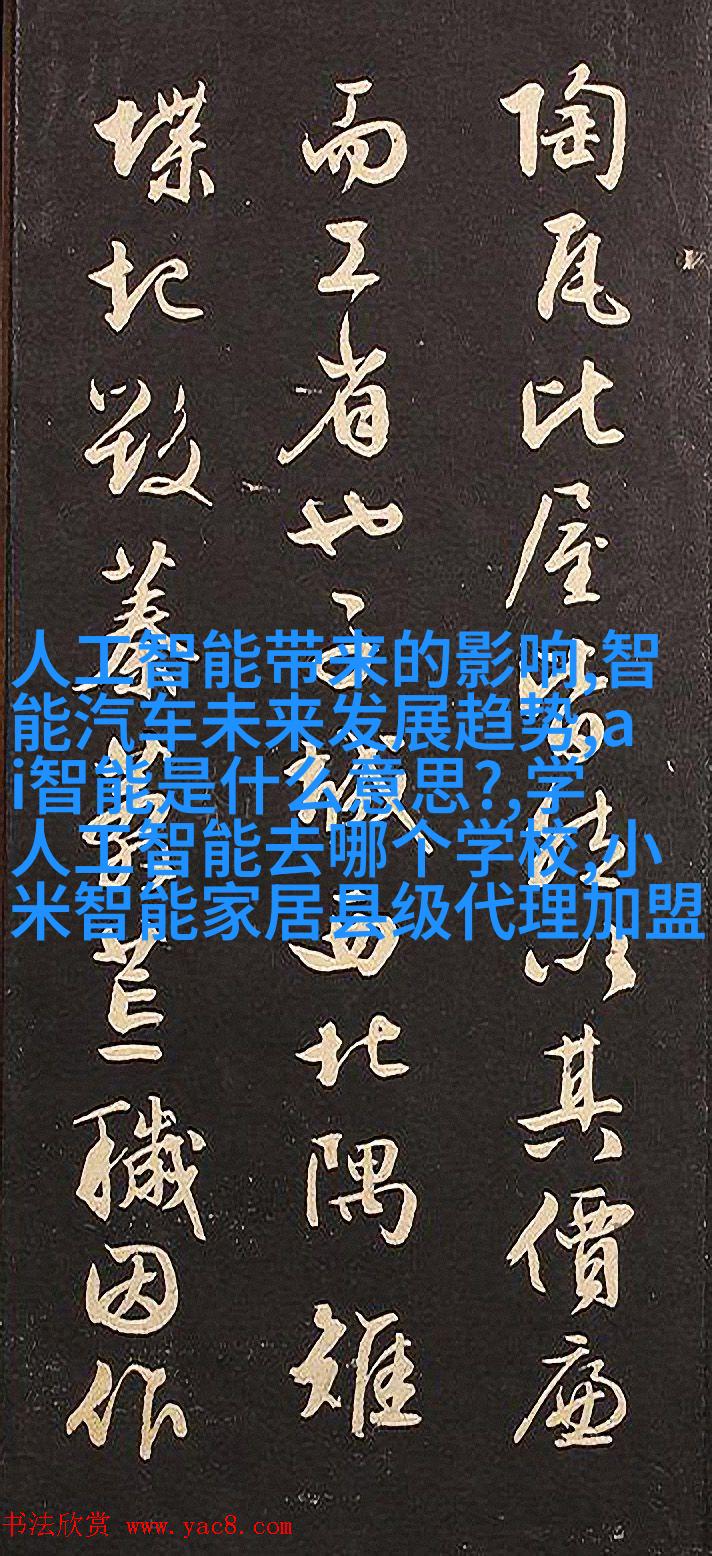 陶瓦比屋皆然以其價廉
而工省也子城西北隅雉
堞圮毀蓁莽荒穢因作
人工智能带来的影响,智
能汽车未来发展趋势,a
i智能,是什么意思?,学
人工智能去哪个学校,小
米智能家居县级代理加盟
书法欣赏 www.yac8.com